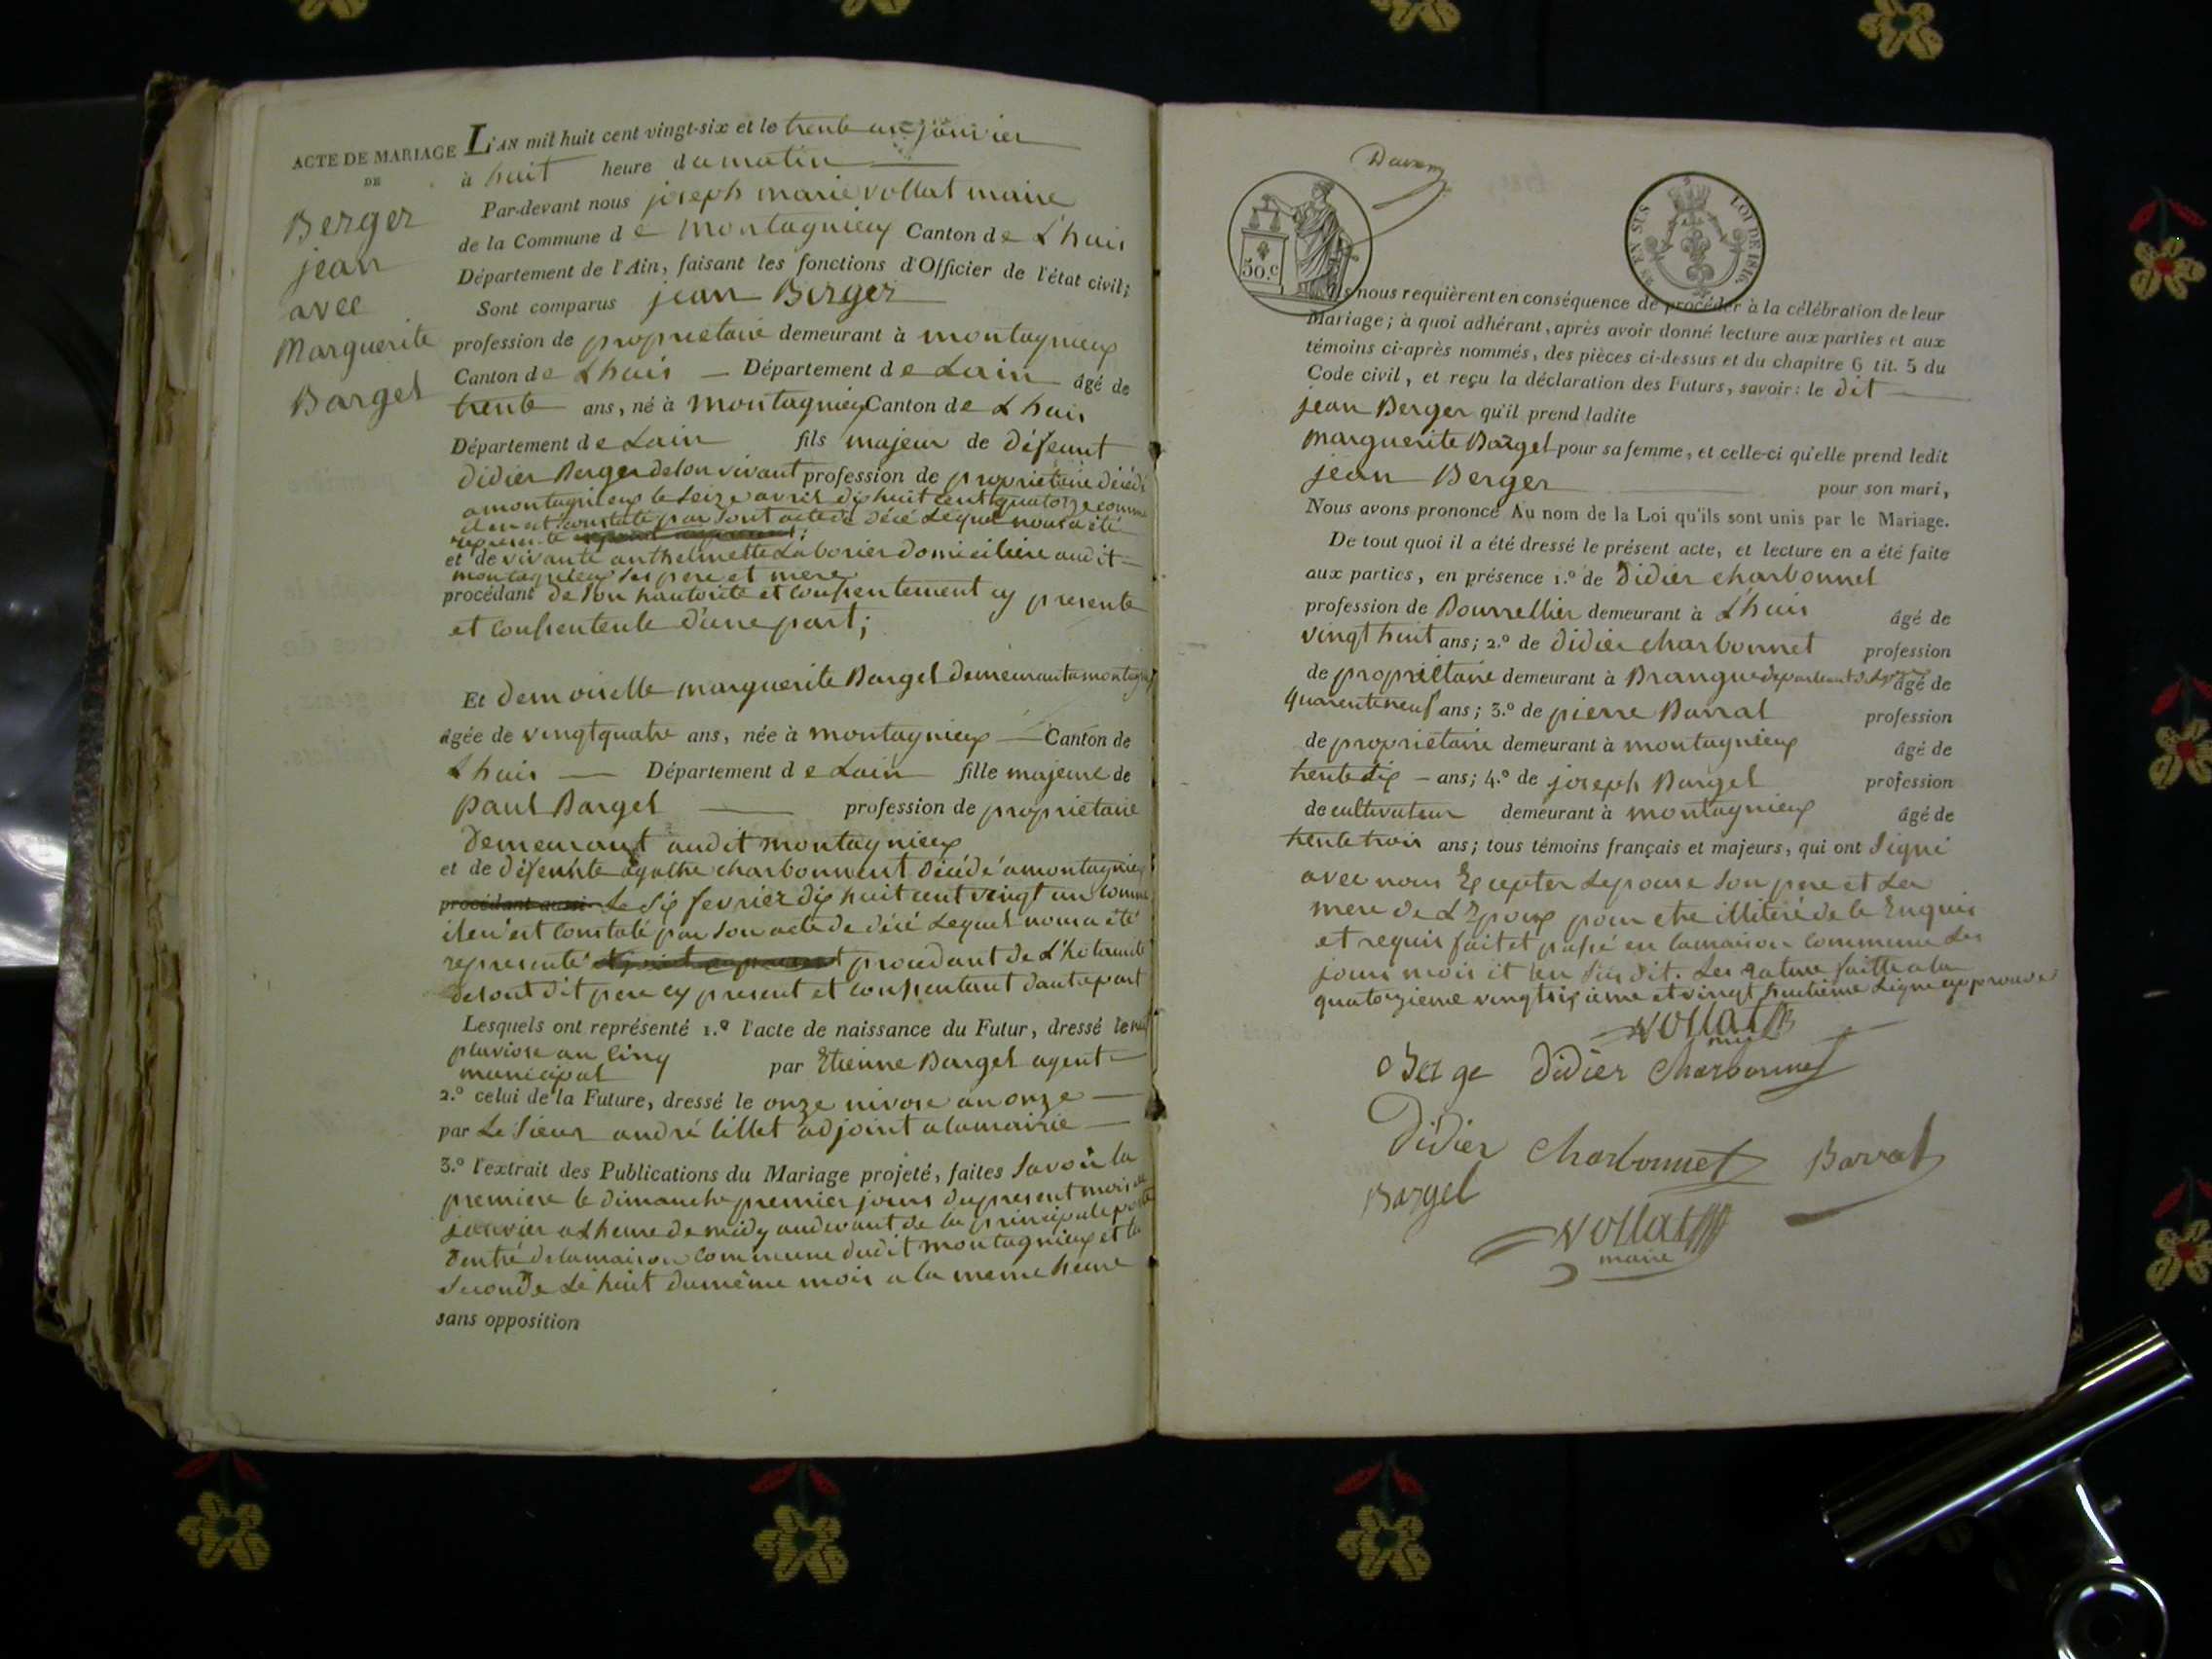 ACTE DE MARIAGE
DE
Berger
jean
avec
Marguerite
Bargel
L'AN mil huit cent vingt-six et le trente un janvier
à huit heure du matin
Par-devant nous joseph marie vollat maire
de la Commune de montagnieux Canton de Lhuis
Département de l'Ain, faisant les fonctions d'Officier de l'état civil;
Sont comparus jean Berger
profession de propriétaire demeurant à montagnieux
Canton de Lhuis Département de Lain âgé de
trente ans, né à montagnieux Canton de Lhuis
Département de Lain fils majeur de défeunt
didier Berger deson vivant profession de propriétaire décédé
a montagnieux le seize avril dix huit cent quatorze comme
il en est constaté par sont acte de décé Lequel nous a été
représenté
et de vivante anthelmette Laborier domiciliére audit
montagnieux ses pere et mere
procédant de son hautorité et consentement cy presente
et consentente d'une part;
Et demoiselle marguerite Bargel demeurant a montagnieux
âgée de vingtquatre ans, née à montagnieux Canton de
Lhuis Département de Lain fille majeure de
paul Bargel profession de propriétaire
demeurant audit montagnieux
et de défeunte agathe charbonnent décédé a montagnieux
procédant aussi Le six fevrier dix huit cent vingt un comme
il en est constaté par son acte de décé Lequel nous a été
représenté procédant de L'hotaurité
desont dit pere cy present et consentant dautrepart
Lesquels ont représenté 1.º l'acte de naissance du Futur, dressé le neuf
pluviose an cinq par Etienne Bargel agent
municipal
2.º celui de la Future, dressé le onze nivose an onze
par Le sieur andré lillet adjoint a la mairie
3.º l'extrait des Publications du Mariage projeté, faites savoir la
premiere le dimanche premier jour du present mois de
janvier a L'heure de midy audevant de la principale porte
dentré de la maison commune dudit montagnieux et la
seconde Le huit du même mois a la meme heure
sans opposition
50.c
EN SUS
LOI DE 1816
Ils nous requièrent en conséquence de procéder à la célébration de leur
Mariage; à quoi adhérant, après avoir donné lecture aux parties et aux
témoins ci-après nommés, des pièces ci-dessus et du chapitre 6 tit. 5 du
Code civil, et reçu la déclaration des Futurs, savoir: le dit
jean Berger qu'il prend ladite
marguerite Bargel pour sa femme, et celle-ci qu'elle prend ledit
jean Berger pour son mari,
Nous avons prononcé Au nom de la Loi qu'ils sont unis par le Mariage.
De tout quoi il a été dressé le présent acte, et lecture en a été faite
aux parties, en présence 1.º de Didier charbonnet
profession de Bourrellier demeurant à Lhuis âgé de
vingt huit ans; 2.º de didier charbonnet profession
de propriétaire demeurant à Brangue âgé de
quarenteneuf ans; 3.º de pierre Barral profession
de propriétaire demeurant à montagnieux âgé de
trente dix ans; 4.º de joseph Bargel profession
de cultivateur demeurant à montagnieux âgé de
trente trois ans; tous témoins français et majeurs, qui ont signé
avec nous Excepter Lepouse son pere et La
mere de L'Epoux pour etre illitéré de le Enquis
et requis fait et passé en la maison commune Les
jour mois et an sus dit. Les rature faitte a la
quatorzieme vingtsixieme et vingt huitième Ligne approuvé
vollat
Berge Didier Charbonnet
Didier Charbonnet Barral
Bargel
vollat
maire